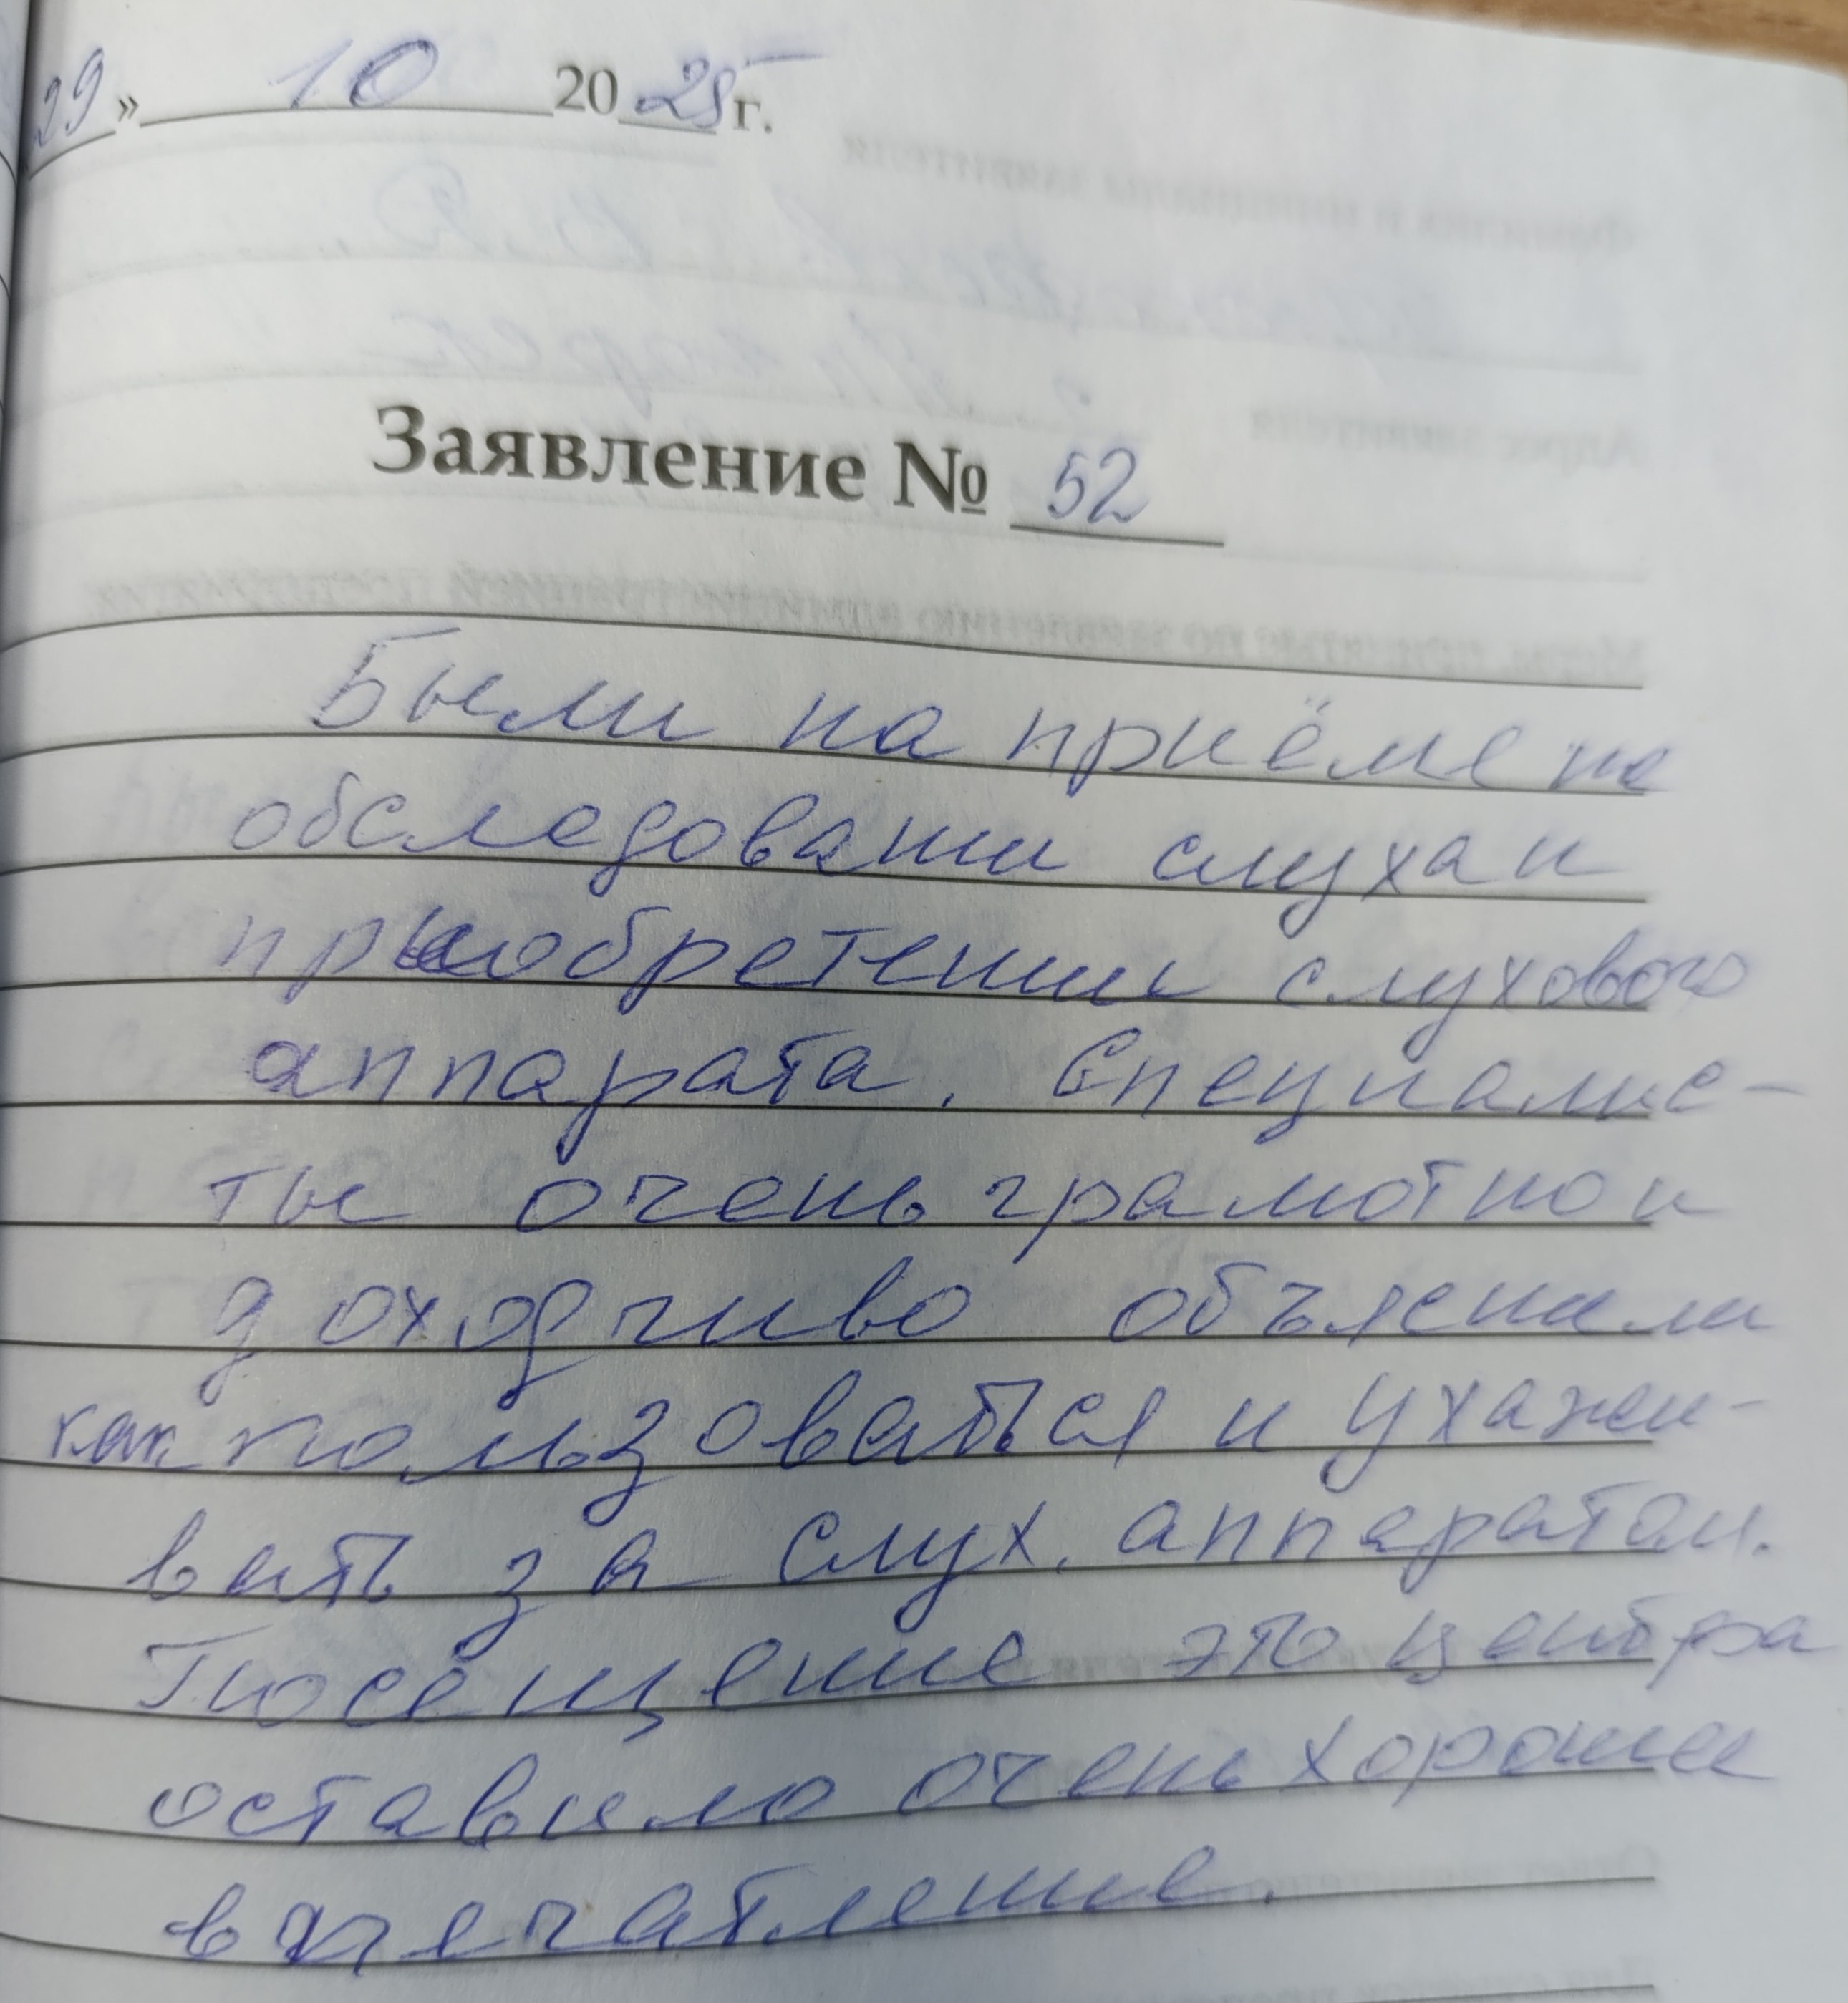 29» 10 2025 г.
Заявление № 52
Были на приёме на
обследовании слуха и
приобретении слухового
аппарата. Специалис-
ты очень грамотно и
доходчиво объяснили
как пользоваться и ухажи-
вать за слух. аппаратом.
Посещение это центра
оставило очень хорошее
впечатление.